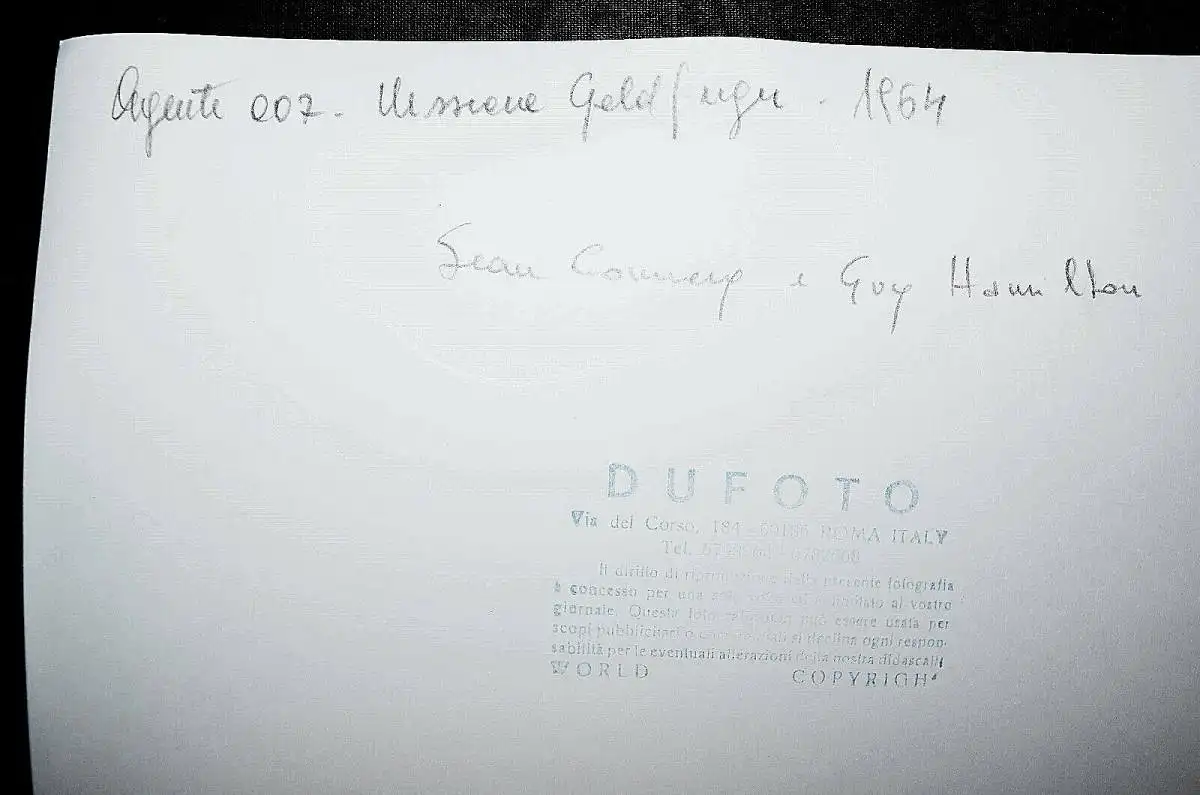 Agente 007 - Missione Goldfinger - 1964
Sean Connery e Guy Hamilton
DUFOTO
Via del Corso, 184 - 00186 ROMA ITALY
Tel.
Il diritto di riproduzione della presente fotografia
è concesso per una sola volta ed limitato al vostro
giornale. Questa foto non può essere usata per
scopi pubblicitari o si declina ogni respon-
sabilità per le eventuali alterazioni della nostra didascalia
WORLD COPYRIGHT